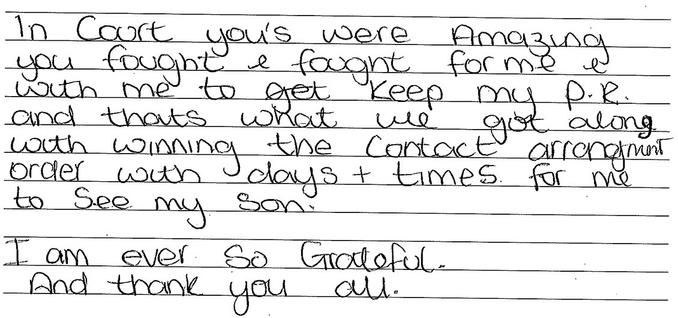 In Court you's were Amazing
you fought & fought for me &
with me to get keep my P.R.
and thats what we got along
with winning the Contact arrangment
order with days + times. for me
to See my son.
I am ever So Grateful.
And thank you all.